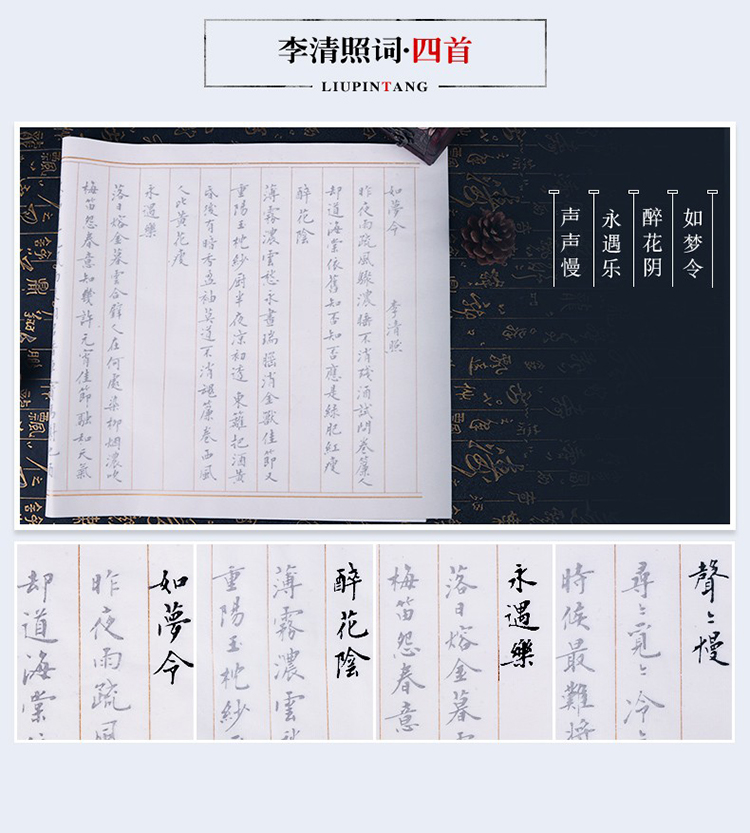 李清照词·四首
LIUPINTANG
如夢令 李清照
昨夜雨疏風驟濃睡不消殘酒試問卷簾人
却道海棠依舊知否知否應是綠肥紅瘦
醉花陰
薄霧濃雲愁永晝瑞腦消金獸佳節又
重陽玉枕紗厨半夜凉初透東籬把酒黃
昏後有暗香盈袖莫道不消魂簾卷西風
人比黃花瘦
永遇樂
落日熔金暮雲合璧人在何處染柳烟濃吹
梅笛怨春意知幾許元宵佳節融和天氣
如梦令
醉花阴
永遇乐
声声慢
如夢令
昨夜雨疏風
却道海棠
醉花陰
薄霧濃雲愁
重陽玉枕紗
永遇樂
落日熔金暮雲
梅笛怨春意
聲〻慢
尋〻覓〻冷〻
時候最難將